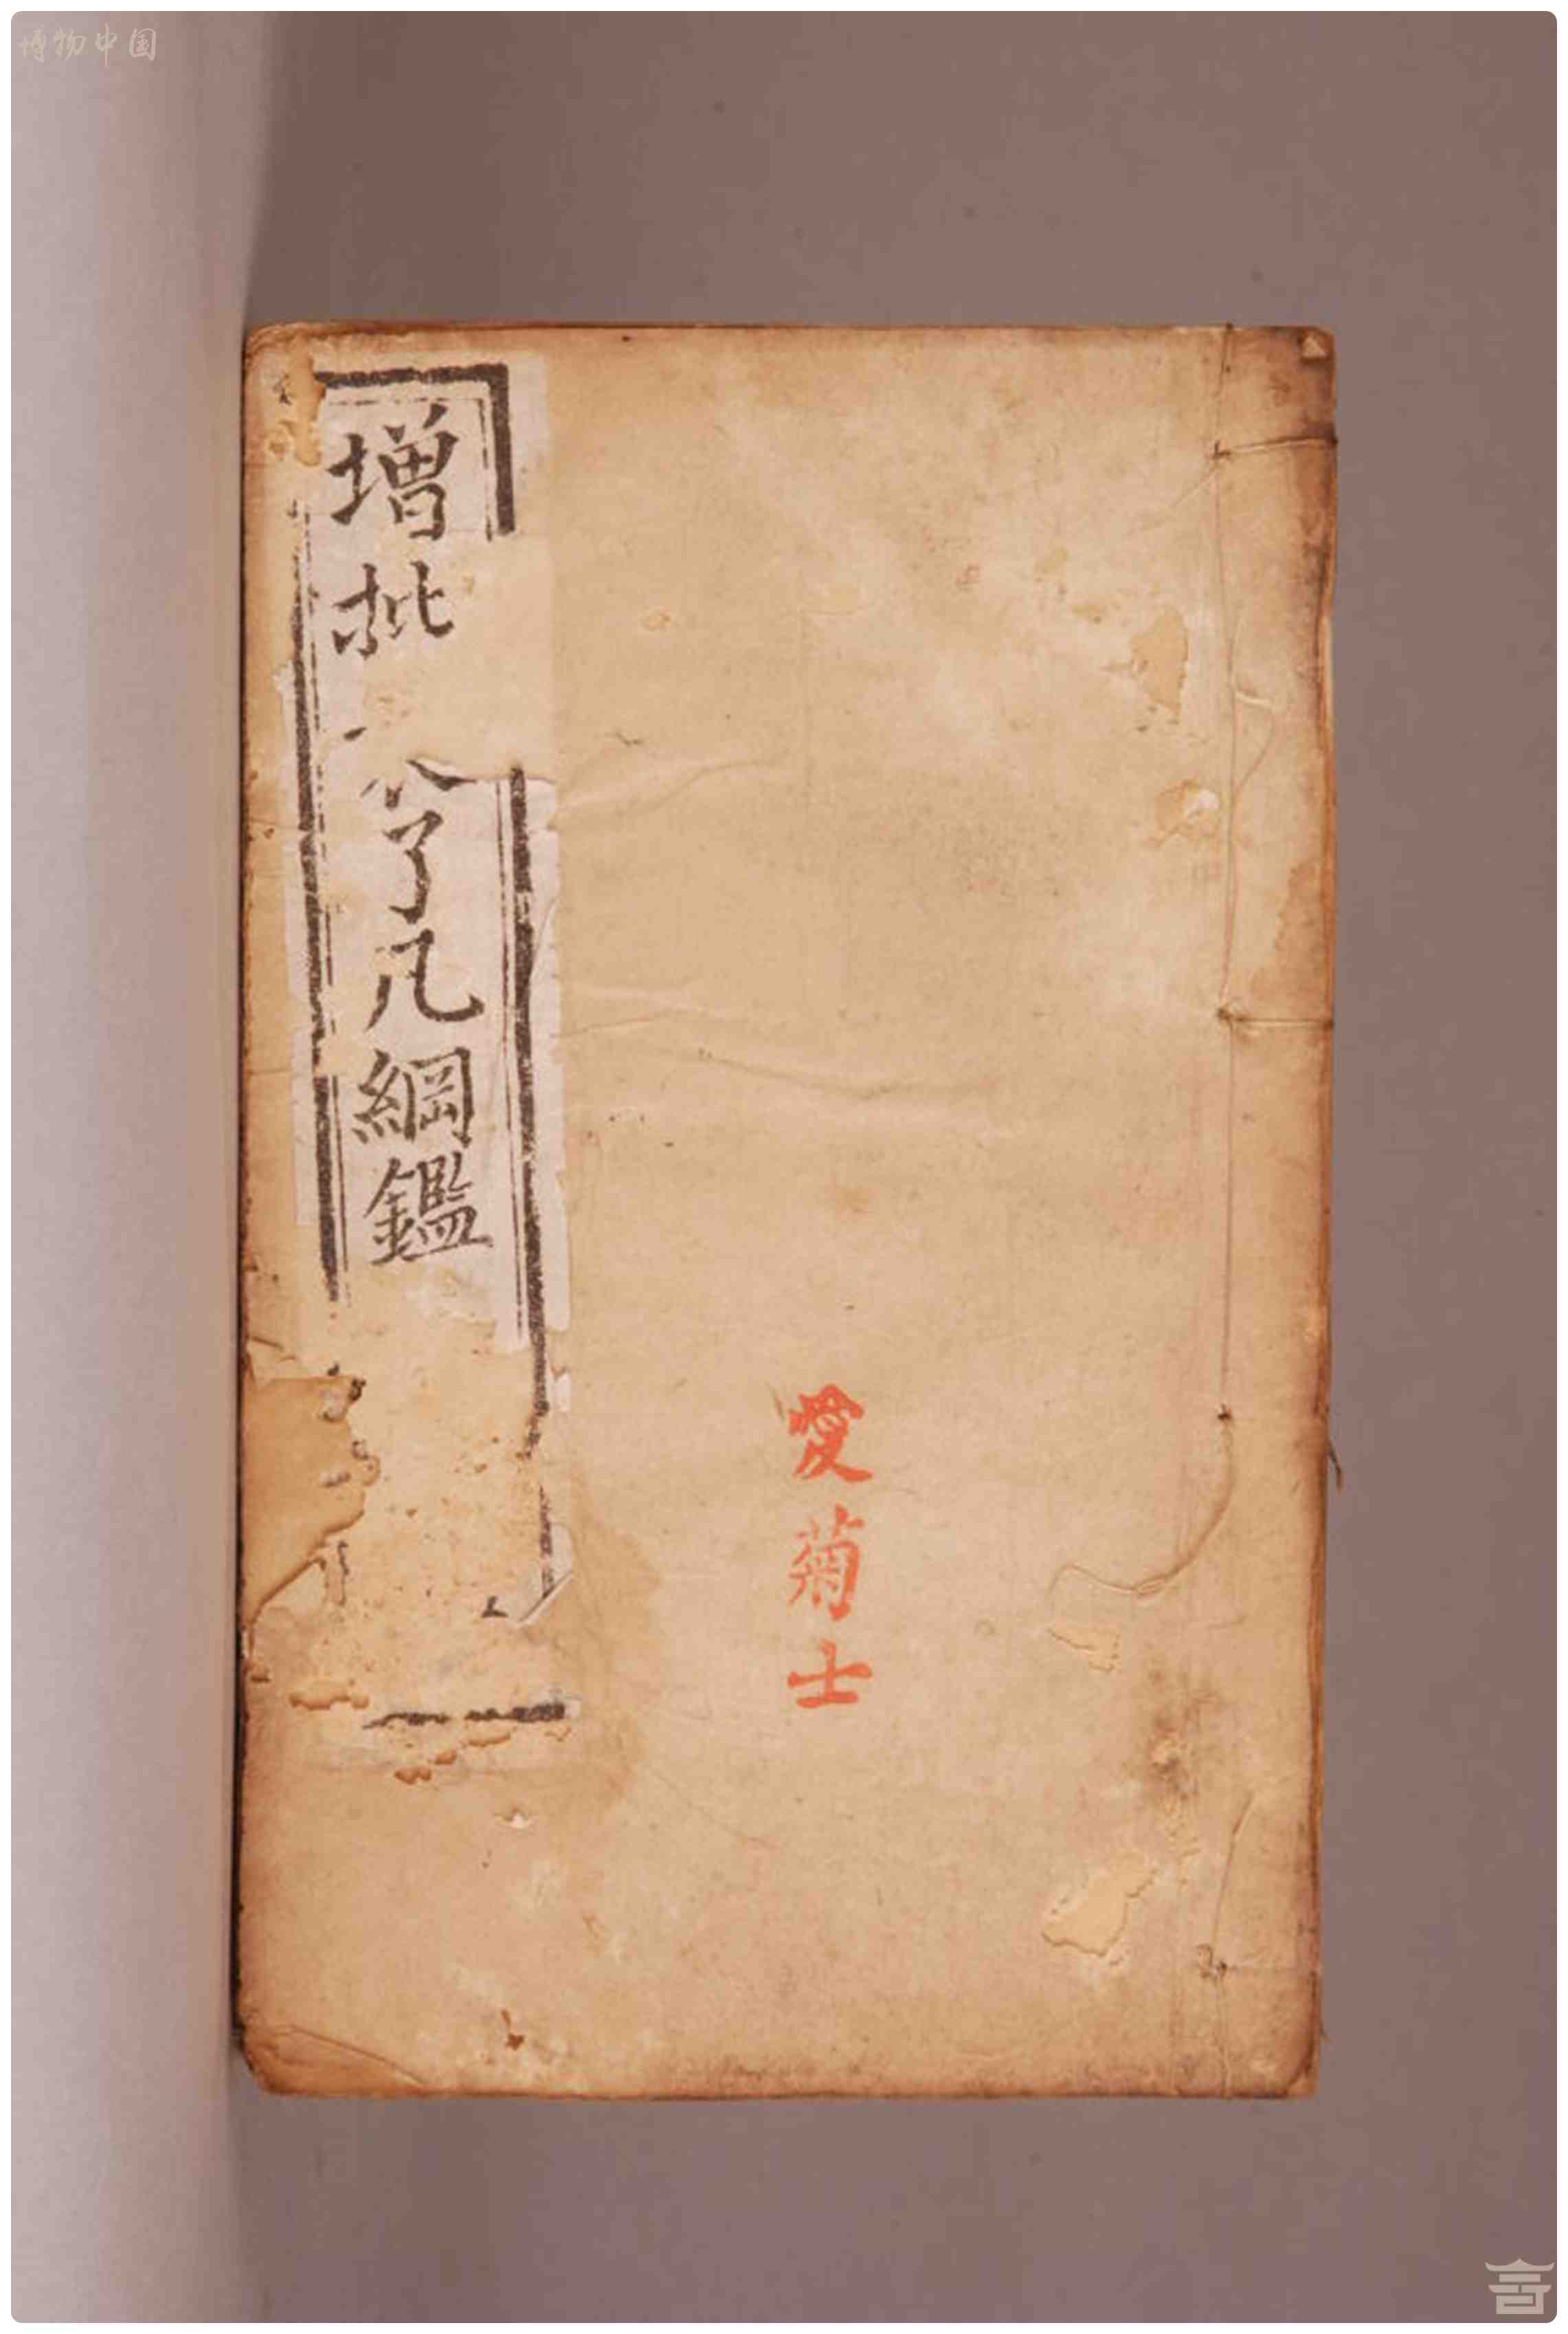 博物中国
愛菊士
增批
了凡綱鑑